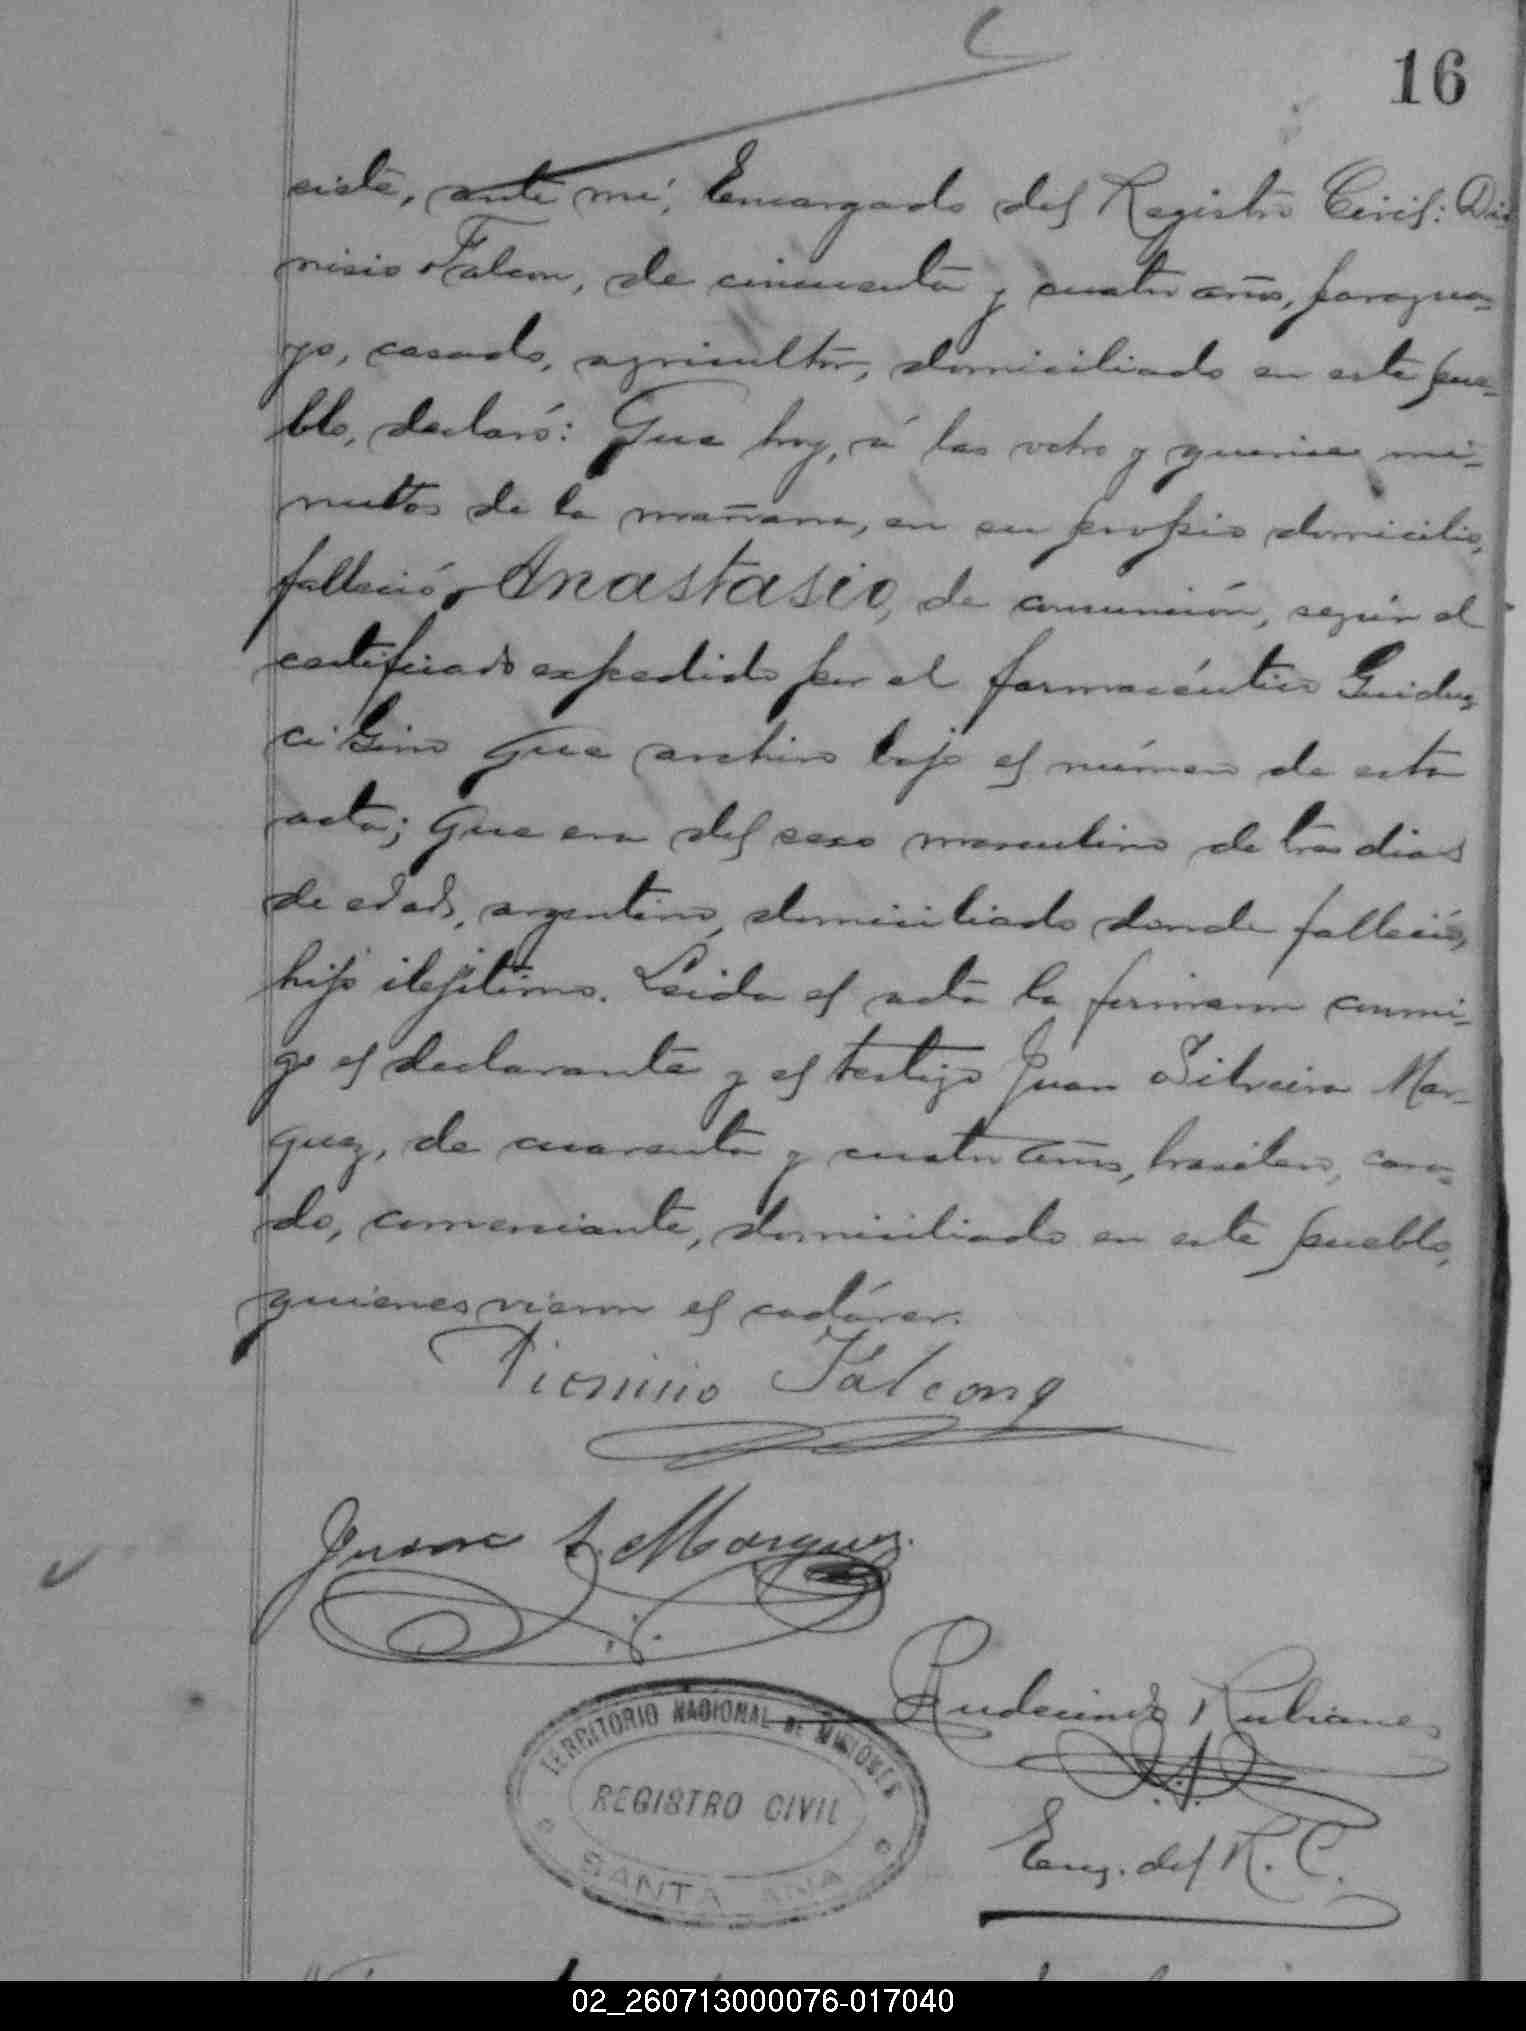 16
siete, ante mí, Encargado del Registro Civil: Dio
nisio Falcon, de cincuenta y cuatro años, paragua-
yo, casado, agricultor, domiciliado en este pue-
blo, declaró: Que hoy, á las ocho y quince mi-
nutos de la mañana, en su propio domicilio,
falleció Anastasio, de consunción, según el
certificado expedido por el farmacéutico Guiduz
ci Gino que archivo bajo el número de esta
acta; que era del sexo masculino de tres dias
de edad, argentino, domiciliado donde falleció,
hijo ilejítimo. Leida el acta la firmaron conmi-
go el declarante y el testigo Juan Silveira Mar-
quez, de cuarenta y cuatro años, brasilero, casa-
do, comerciante, domiciliado en este pueblo,
quienes vieron el cadáver.
Dionicio Falcong
Juan S. Marquez.
Rudecindo Rubianes
TERRITORIO NACIONAL DE MISIONES
REGISTRO CIVIL
SANTA ANA
Enc. del R. C.
02_260713000076-017040